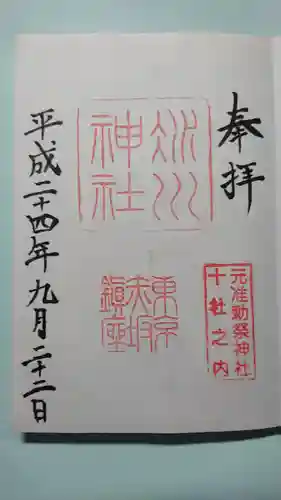 奉拝
氷川
神社
元准勅祭神社
十社之内
東京
赤坂
鎮座
平成二十四年九月二十二日